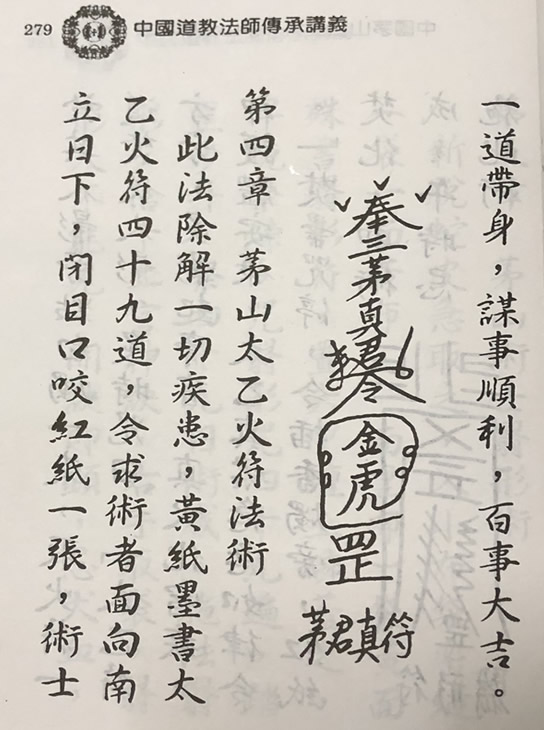 279
中國道教法師傳承講義
一道帶身，謀事順利，百事大吉。
奉三茅真君令
金虎
罡
茅君真符
第四章　茅山太乙火符法術
此法除解一切疾患，黃紙墨書太
乙火符四十九道，令求術者面向南
立日下，閉目口咬紅紙一張，術士